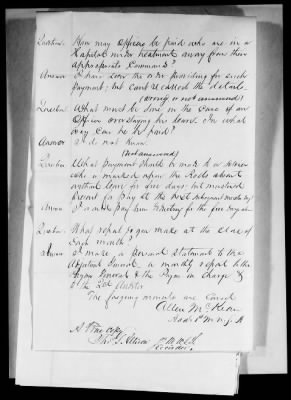 Question. How may officers be paid who are in a
Hospital under treatment away from their
appropriate command?
Answer I have seen the order providing for such
payment, but can't recollect the details.
(wrong or not answered)
Question What must be done in the case of an
Officer overstaying his leave. In what
way can he be paid?
Answer I do not know.
(Not answered)
Question What payment should be made to a soldier
who is marked upon the Rolls absent
without leave for five days, but mustered
present for pay at the next subsequent muster day
Answer I would pay him deducting for the five days
Question. What report do you make at the close of
each month?
Answer I make a personal statement to the
Adjutant General, a monthly report to the
Paymr General & the Paymr in charge &
to the 2nd Auditor
The foregoing minutes are correct
Allen
A True Copy
Recorder